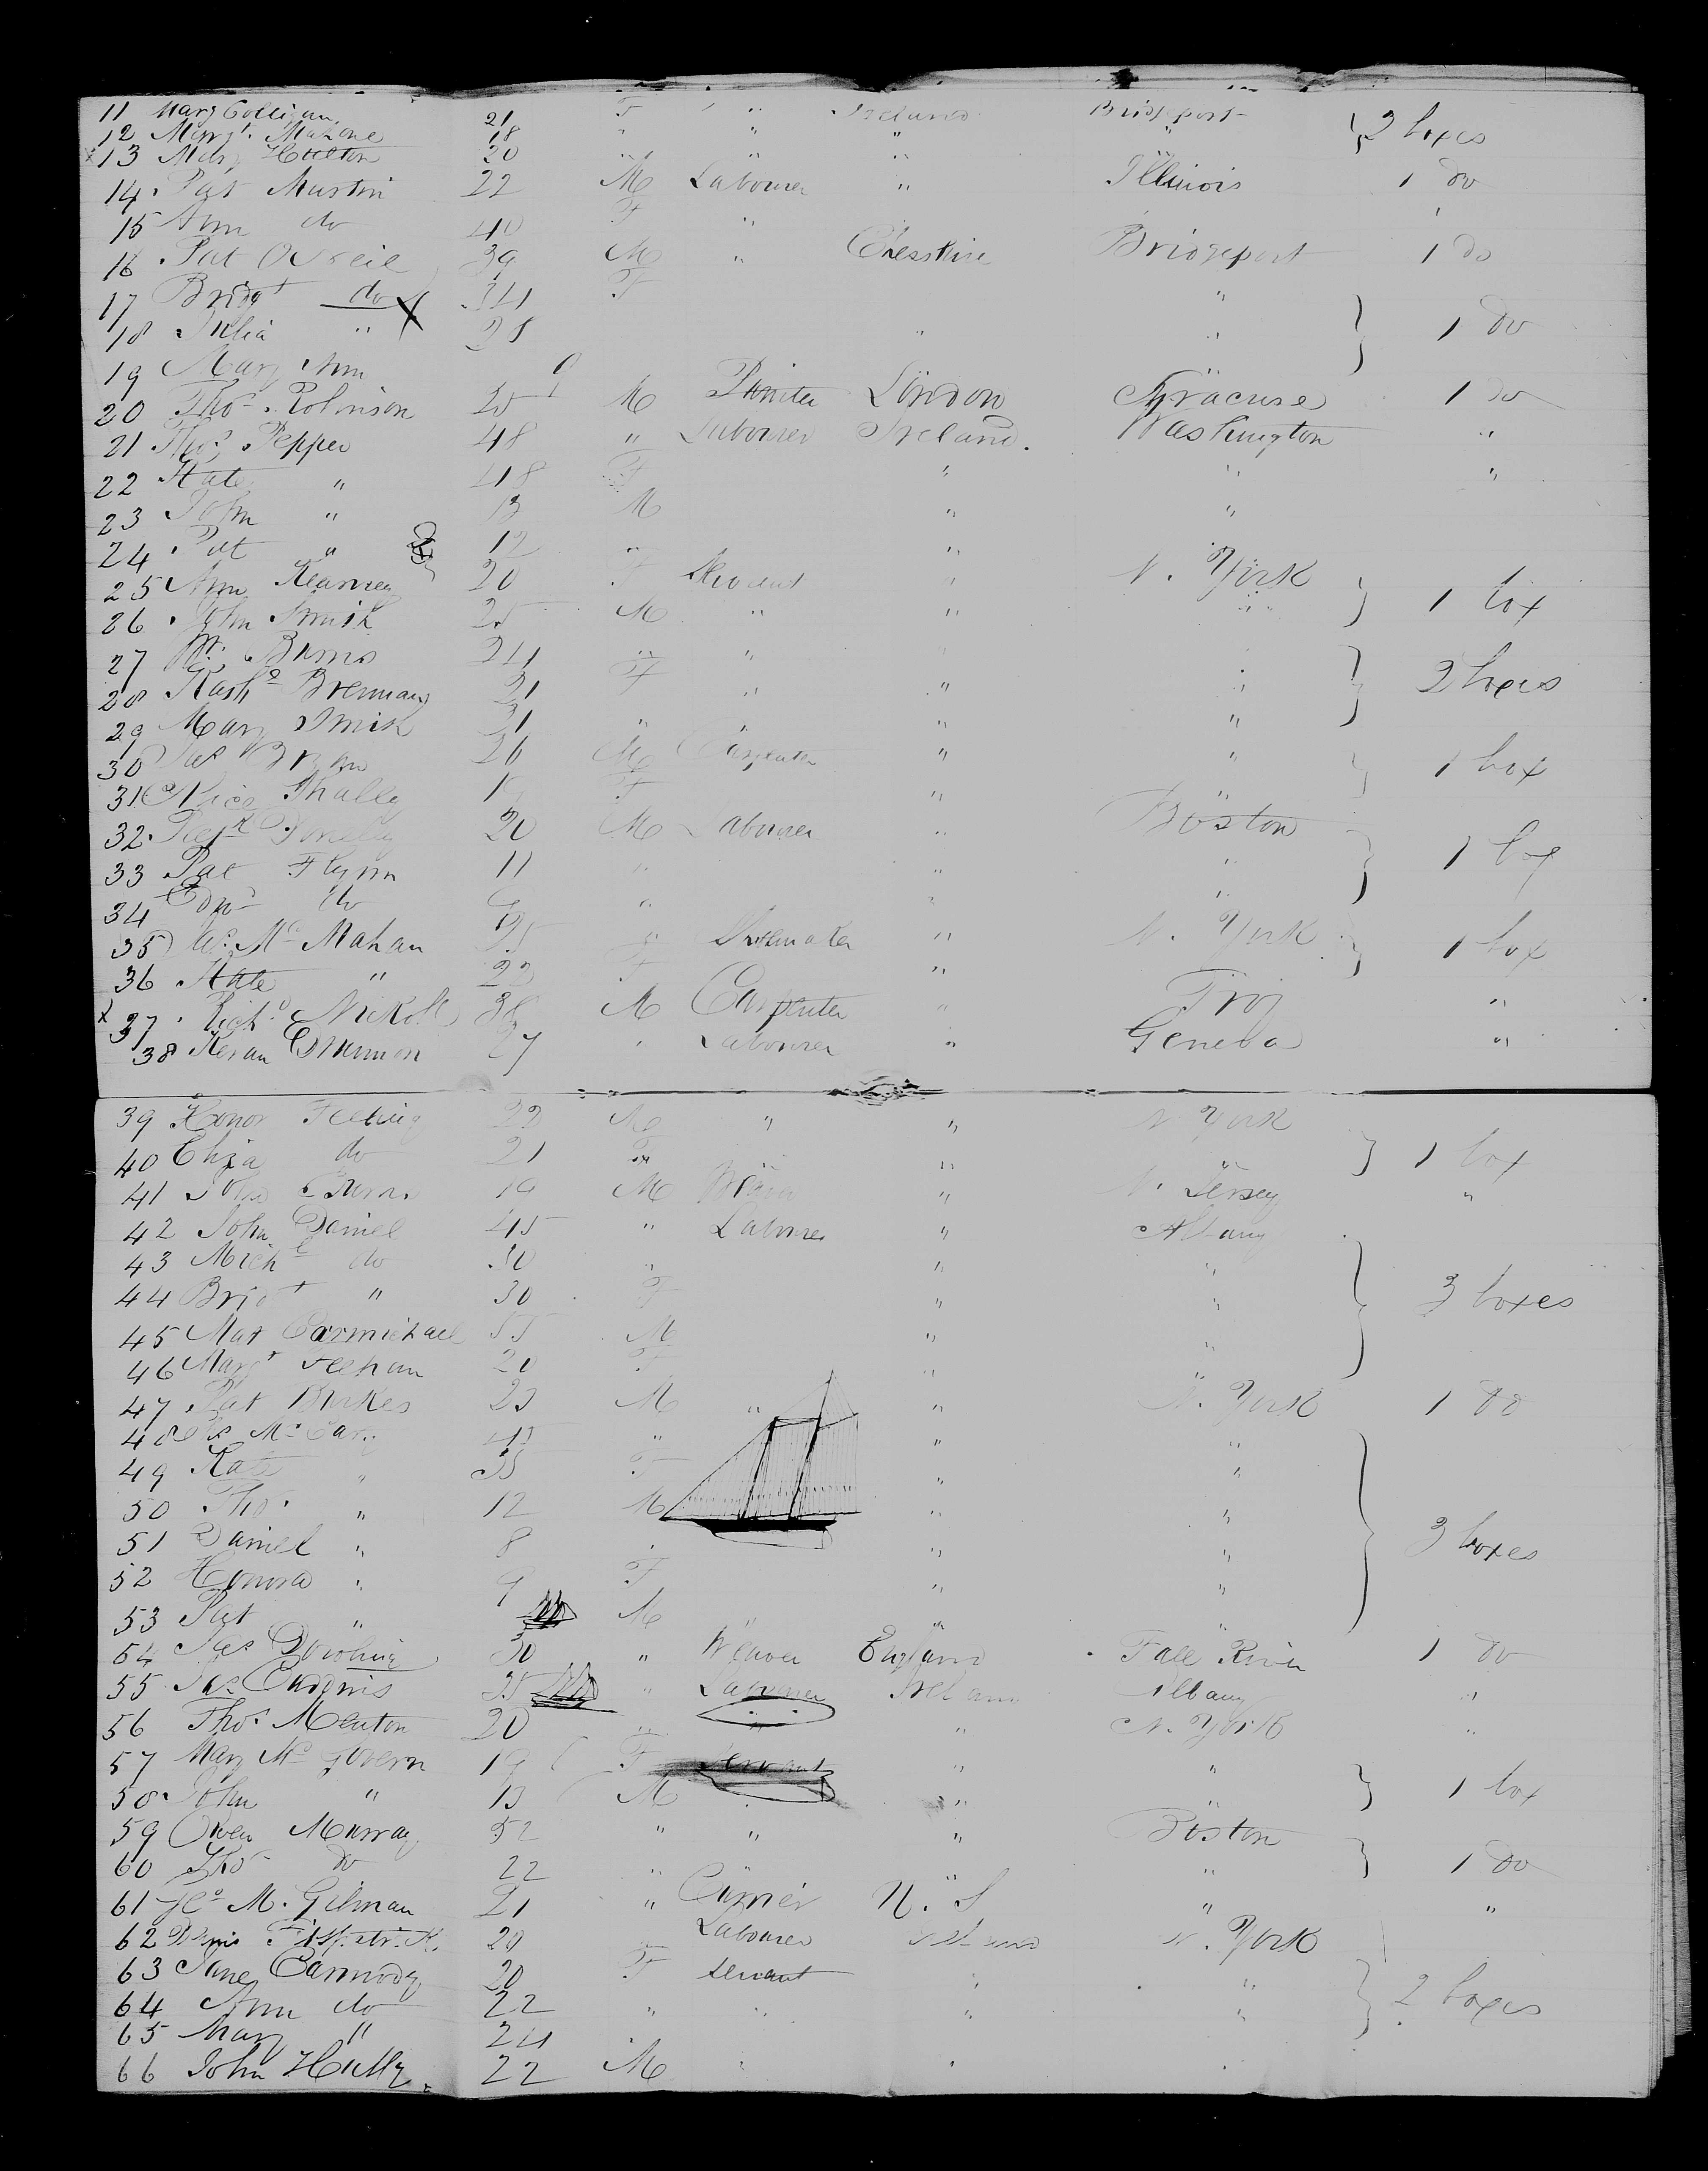 11 Mary Colligan 21 F " Ireland Bridgeport
12 Margt. Mahone 18 " " " " } 2 boxes
x13 Mary Hulton 20 " " "
14 Pat Mustin 22 M Labourer " Illinois 1 do
15 Ann do 40 F " "
16 Pat O'Neil 39 M " Chesshire Bridgeport 1 do
17 Bridgt do 34 F "
18 Julia " 28 " " } 1 do
19 Mary Ann 9
20 Thos. Robinson 25 M London Syracuse 1 do
21 Thos Pepper 48 " Labourer Ireland. Washington "
22 Kate " 48 F " " "
23 John " 13 M " "
24 Pat " 12 " "
25 Ann Kearney 20 F Servant " N. York
26 John Smith 25 M " " " } 1 box
27 Burns 24 " " "
28 Brennan 21 F " " " } 2 boxes
29 Mary Smith 21 " " " "
30 Jas 26 M Carpenter " " } 1 box
31 Alice 19 F " "
32 20 M Labourer " Boston
33 Pat Flynn 11 " " " } 1 box
34 Edwd do " " "
35 Jas. McMahan 35 " Shoemaker " N. York } 1 box
36 Kate " 22 F "
x 37 Richd. 38 M Carpenter " Troy "
38 Keran 27 " Labourer " Geneva "
39 Honor 22 M " " N York
40 Eliza do 21 F " } 1 box
41 19 M " N. Jersey "
42 John Daniel 45 " Labourer " Albany
43 Michl do 30 " " "
44 Bridt " 30 F " " } 3 boxes
45 Mat Carmichael 55 M " "
46 Margt Feehan 20 F " "
47 Pat Burkes 23 M " " N. York 1 do
48 Jas McCary 45 " " "
49 Kate " 35 F " "
50 Thos. " 12 M " "
51 Daniel " 8 " " " } 3 boxes
52 Honora " 9 F " "
53 Pat " M "
54 Jas Dowling 30 " Weaver England Fall River 1 do
55 Jas 35 " Labourer Ireland Albany "
56 Thos. Menton 20 " " " N. York "
57 Mary McGovern 19 F Servant " "
58 John " 13 M " " } 1 box
59 Owen Murray 52 " " " Boston
60 Thos do 22 " " " } 1 do
61 M. Gilman 21 " Currier N. S " "
62 Denis Fitspatrick. 20 Labourer Ireland N. York
63 Jane Carmody 20 F Servant " "
64 Ann do 22 " " " " } 2 boxes
65 Mary " 24
66 John 22 M " " "